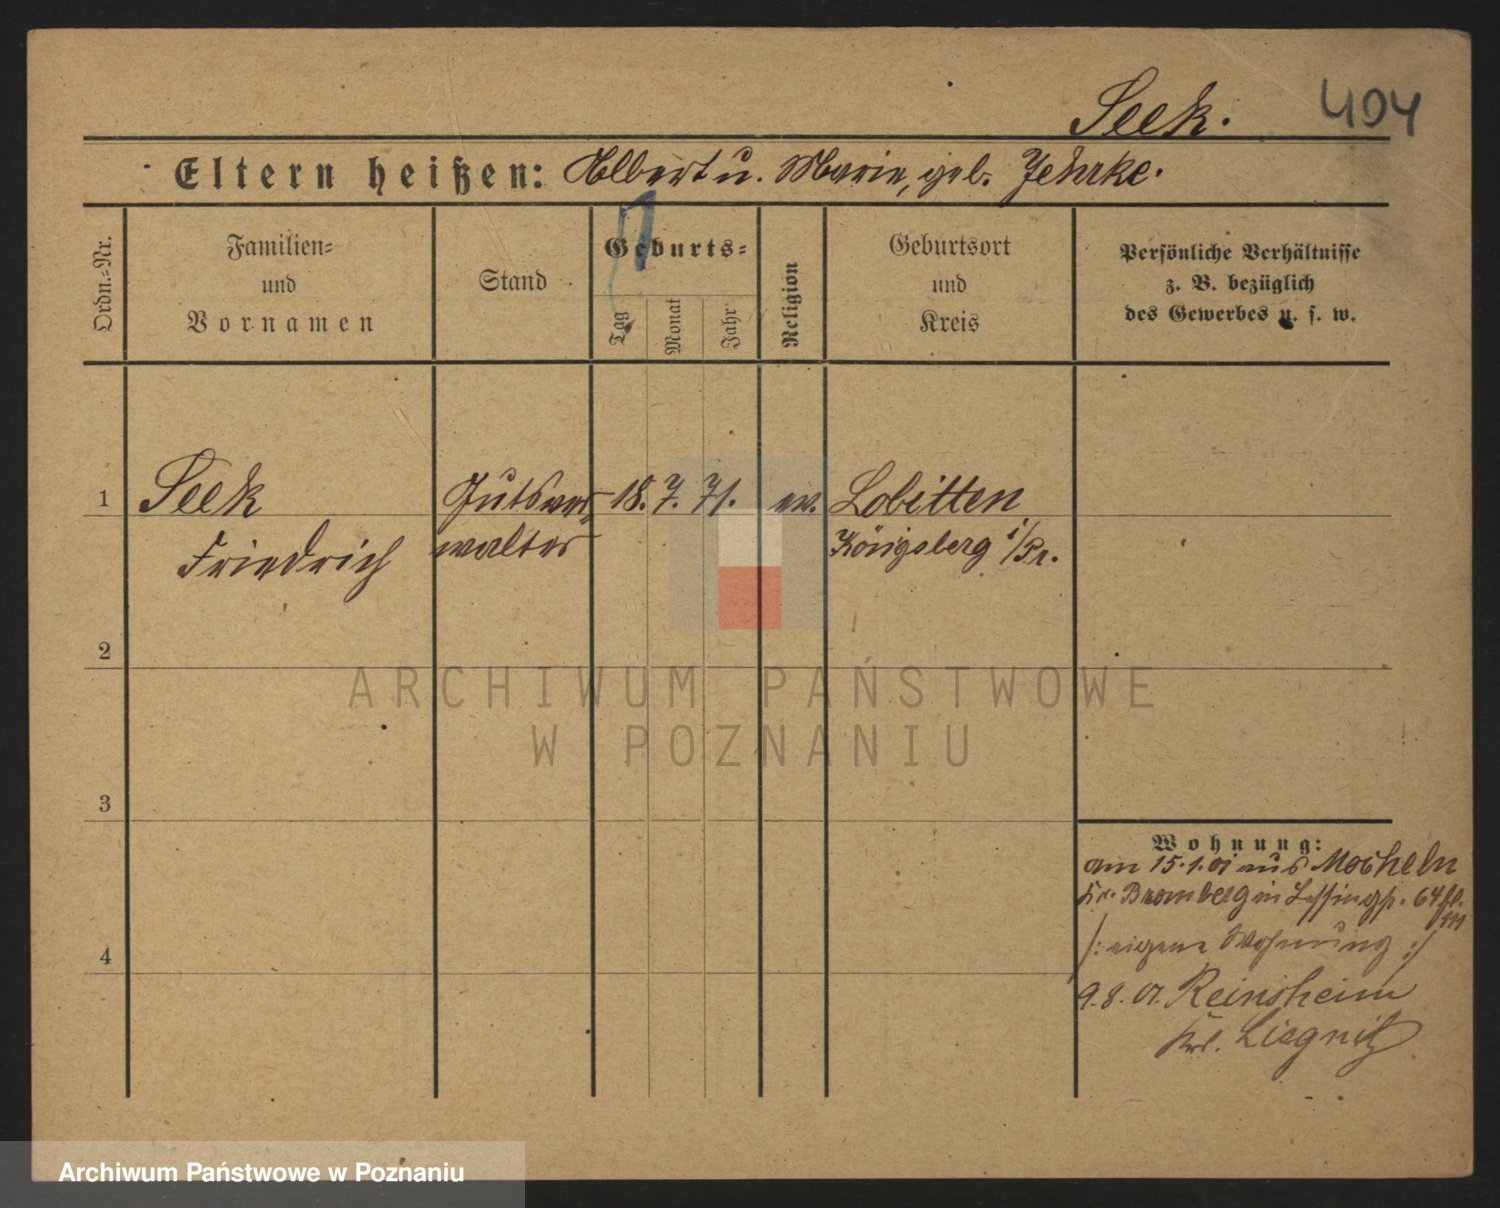 Seek.
404
Eltern heißen: Albert u. Marie, geb. Jehrke.
Ordn.-Nr.
Familien-
und
Vornamen
Stand
Geburts-
Tag
Monat
Jahr
Religion
Geburtsort
und
Kreis
Persönliche Verhältnisse
z. B. bezüglich
des Gewerbes u. s. w.
1 Seek Gutsver- 18. 7. 71. ev. Lobitten
Friedrich walter Königsberg i/Pr.
2
3
4
Wohnung:
am 15.1.01 aus Mocheln
Kr. Bromberg in Lessingstr. 64
/: eigene Wohnung :/
9.8.01. Reinsheim
Krs. Liegnitz
ARCHIWUM PAŃSTWOWE
W POZNANIU
Archiwum Państwowe w Poznaniu